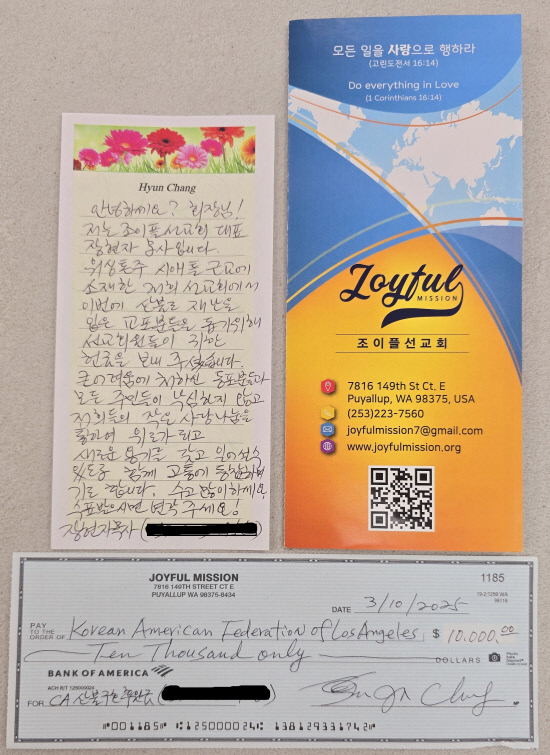 모든 일을 사랑으로 행하라
(고린도전서 16:14)
Do everything in Love
(1 Corinthians 16:14)
Joyful
MISSION
조이플선교회
7816 149th St Ct. E
Puyallup, WA 98375, USA
(253)223-7560
joyfulmission7@gmail.com
www.joyfulmission.org
Hyun Chang
안녕하세요? 회장님!
저는 조이플선교회 대표
장현자 목사입니다.
워싱톤주 시애틀 근교에
소재한 저희 선교회에서
이번에 산불로 재난을
입은 교포분들을 돕기위해
선교회원들이 귀한
헌금을 보내 주셨습니다.
큰 어려움에 처하신 동포분들과
모든 주민들이 낙심하지 않고
저희들의 작은 사랑나눔을
통하여 위로가 되고
새로운 용기를 갖고 일어설수
있도록 함께 고통에 동참하며
기도 합니다. 수고 많이하세요
수표받으시면 연락 주세요.
장현자목사 (
JOYFUL MISSION
7816 149TH STREET CT E
PUYALLUP WA 98375-8434
1185
DATE 3/10/2025
PAY TO THE ORDER OF Korean American Federation of Los Angeles $ 10,000.00
Ten Thousand only DOLLARS
BANK OF AMERICA
ACH R/T 125000024
FOR CA 산불
⑈001185⑈ ⑆125000024⑆ 138129331742⑈